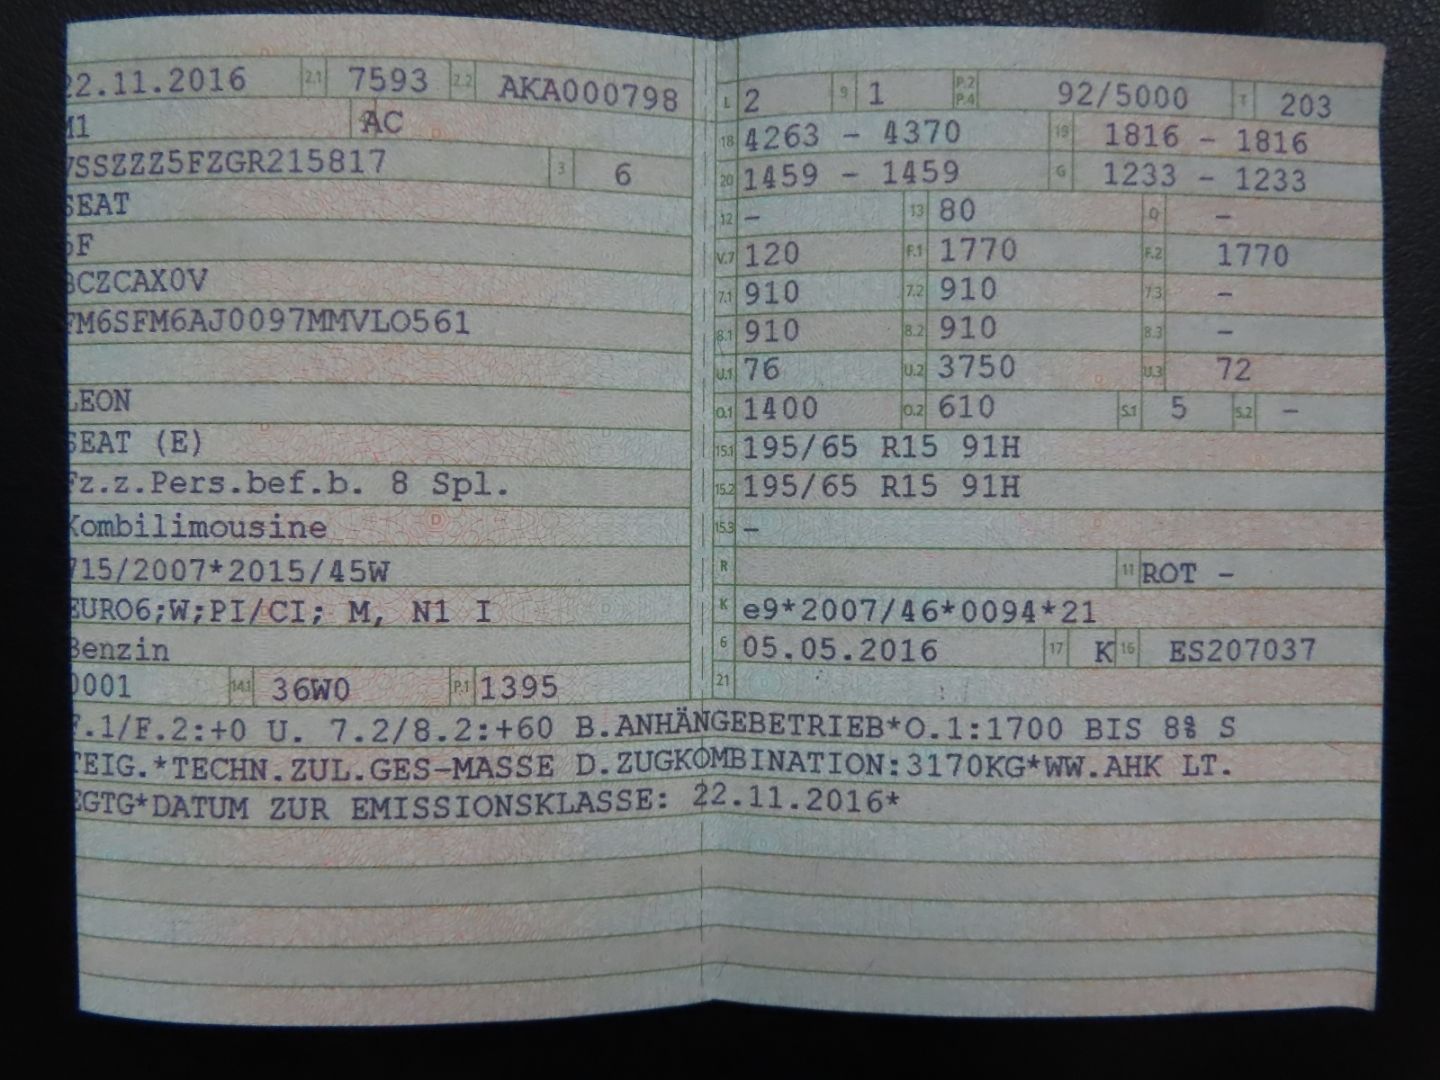 22.11.2016 2.1 7593 2.2 AKA000798
M1 AC
VSSZZZ5FZGR215817 3 6
SEAT
5F
BCZCAX0V
FM6SFM6AJ0097MMVLO561
LEON
SEAT (E)
Fz.z.Pers.bef.b. 8 Spl.
Kombilimousine
715/2007*2015/45W
EURO6;W;PI/CI; M, N1 I
Benzin
0001 14.1 36W0 P.1 1395
L 2 9 1 P.2 P.4 92/5000 T 203
18 4263 - 4370 19 1816 - 1816
20 1459 - 1459 G 1233 - 1233
12 - 13 80 Q -
V.7 120 F.1 1770 F.2 1770
7.1 910 7.2 910 7.3 -
8.1 910 8.2 910 8.3 -
U.1 76 U.2 3750 U.3 72
O.1 1400 O.2 610 S.1 5 S.2 -
15.1 195/65 R15 91H
15.2 195/65 R15 91H
15.3 -
R 11 ROT -
K e9*2007/46*0094*21
6 05.05.2016 17 K 16 ES207037
21
F.1/F.2:+0 U. 7.2/8.2:+60 B.ANHÄNGEBETRIEB*O.1:1700 BIS 8% S
TEIG.*TECHN.ZUL.GES-MASSE D.ZUGKOMBINATION:3170KG*WW.AHK LT.
EGTG*DATUM ZUR EMISSIONSKLASSE: 22.11.2016*